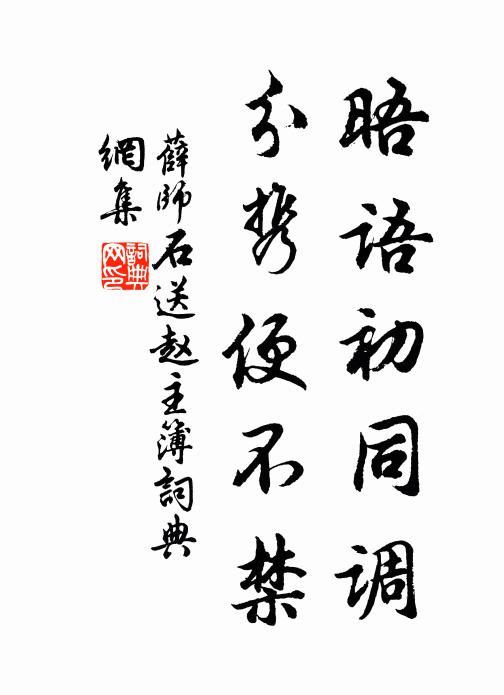 晤语初同调
分携便不禁
薛師石送赵主簿詞典
網集
詞典網印